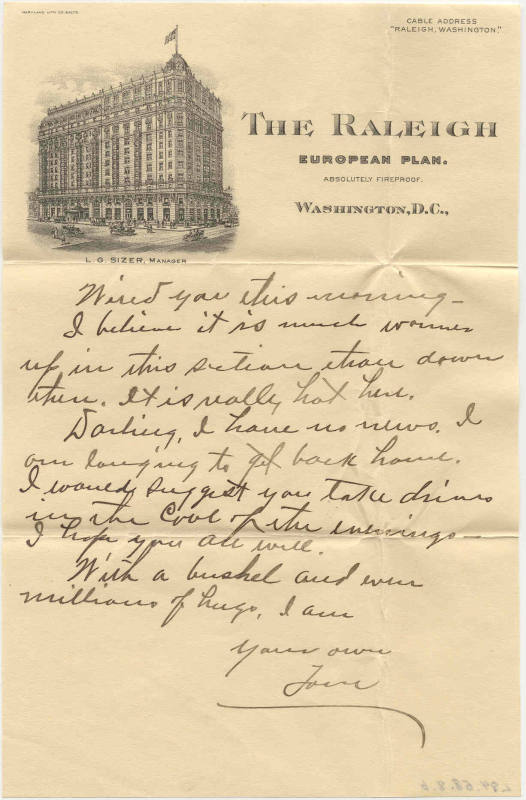 MARYLAND LITH CO. BALTO.
CABLE ADDRESS
"RALEIGH, WASHINGTON."
THE RALEIGH
EUROPEAN PLAN.
ABSOLUTELY FIREPROOF.
WASHINGTON, D.C.,
L. G. SIZER, MANAGER
Wired you this morning—
I believe it is much warmer
up in this section than down
there. It is really hot here.
Darling, I have no news. I
am longing to get back home.
I would suggest you take drives
in the cool of the evenings—
I hope you all well.
With a bushel and even
millions of hugs, I am
Your own
Tom
L94.68.8.6